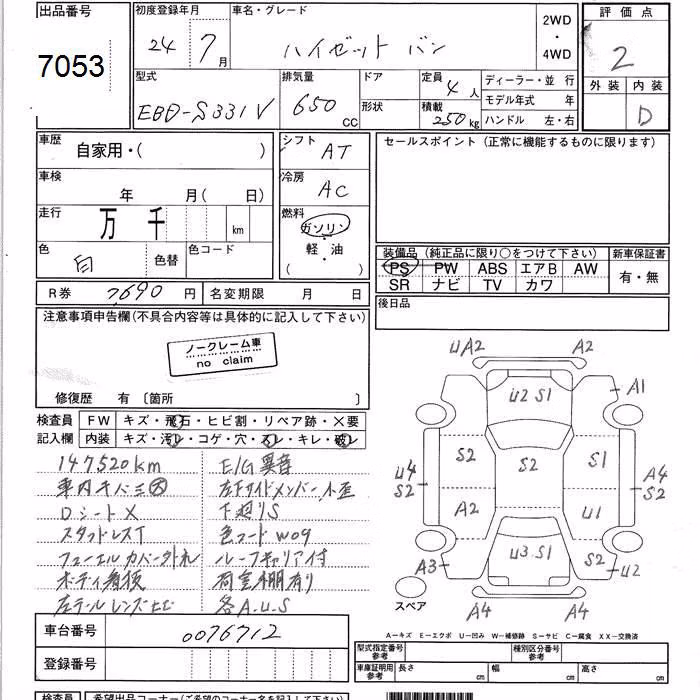 出品番号
7053
初度登録年月
24年7月
車名・グレード
ハイゼット バン
2WD
・
4WD
評価点
2
外装 内装
D
型式
EBD-S331V
排気量
650
CC
ドア
形状
定員 4 人
積載 250 kg
ディーラー・並行
モデル年式 年
ハンドル 左・右
車歴
自家用・( )
車検
年 月( 日)
走行
万 千 km
色
白
色替
色コード
シフト
AT
冷房
AC
燃料
ガソリン
軽・油
( )
セールスポイント(正常に機能するものに限ります)
装備品(純正品に限り○をつけて下さい)
PS PW ABS エアB AW
SR ナビ TV カワ
新車保証書
有・無
後日品
R券 7,690 円
名変期限 月 日
注意事項申告欄(不具合内容等は具体的に記入して下さい)
ノークレーム車
no claim
修復歴 有 〔箇所 〕
検査員
記入欄
FW キズ・飛石・ヒビ割・リペア跡・×要
内装 キズ・汚レ・コゲ・穴・スレ・キレ・破レ
147520km
車内キバミ大
Dシート×
スタッドレスT
フューエルカバー外れ
ボディ着後
左テールレンズヒビ
E/G異音
左Fサイドメンバー小歪
下廻りS
色コードW09
ルーフキャリア付
荷室棚有り
各A.U.S
UA2 A2
U2 S1
A1
S2 S2 S1
U4
S2
A4
S2
A2 U1
U3 S1
S2
A3 U2
A4 A4
スペア
A－キズ E－エクボ U－凹み W－補修跡 S－サビ C－腐食 XX－交換済
車台番号
0076712
登録番号
型式指定番号
参考
種別区分番号
参考
車庫証明用
参考
長さ cm
幅 cm
高さ cm
検査員
希望出品コーナー(ご希望のコーナー名を記入